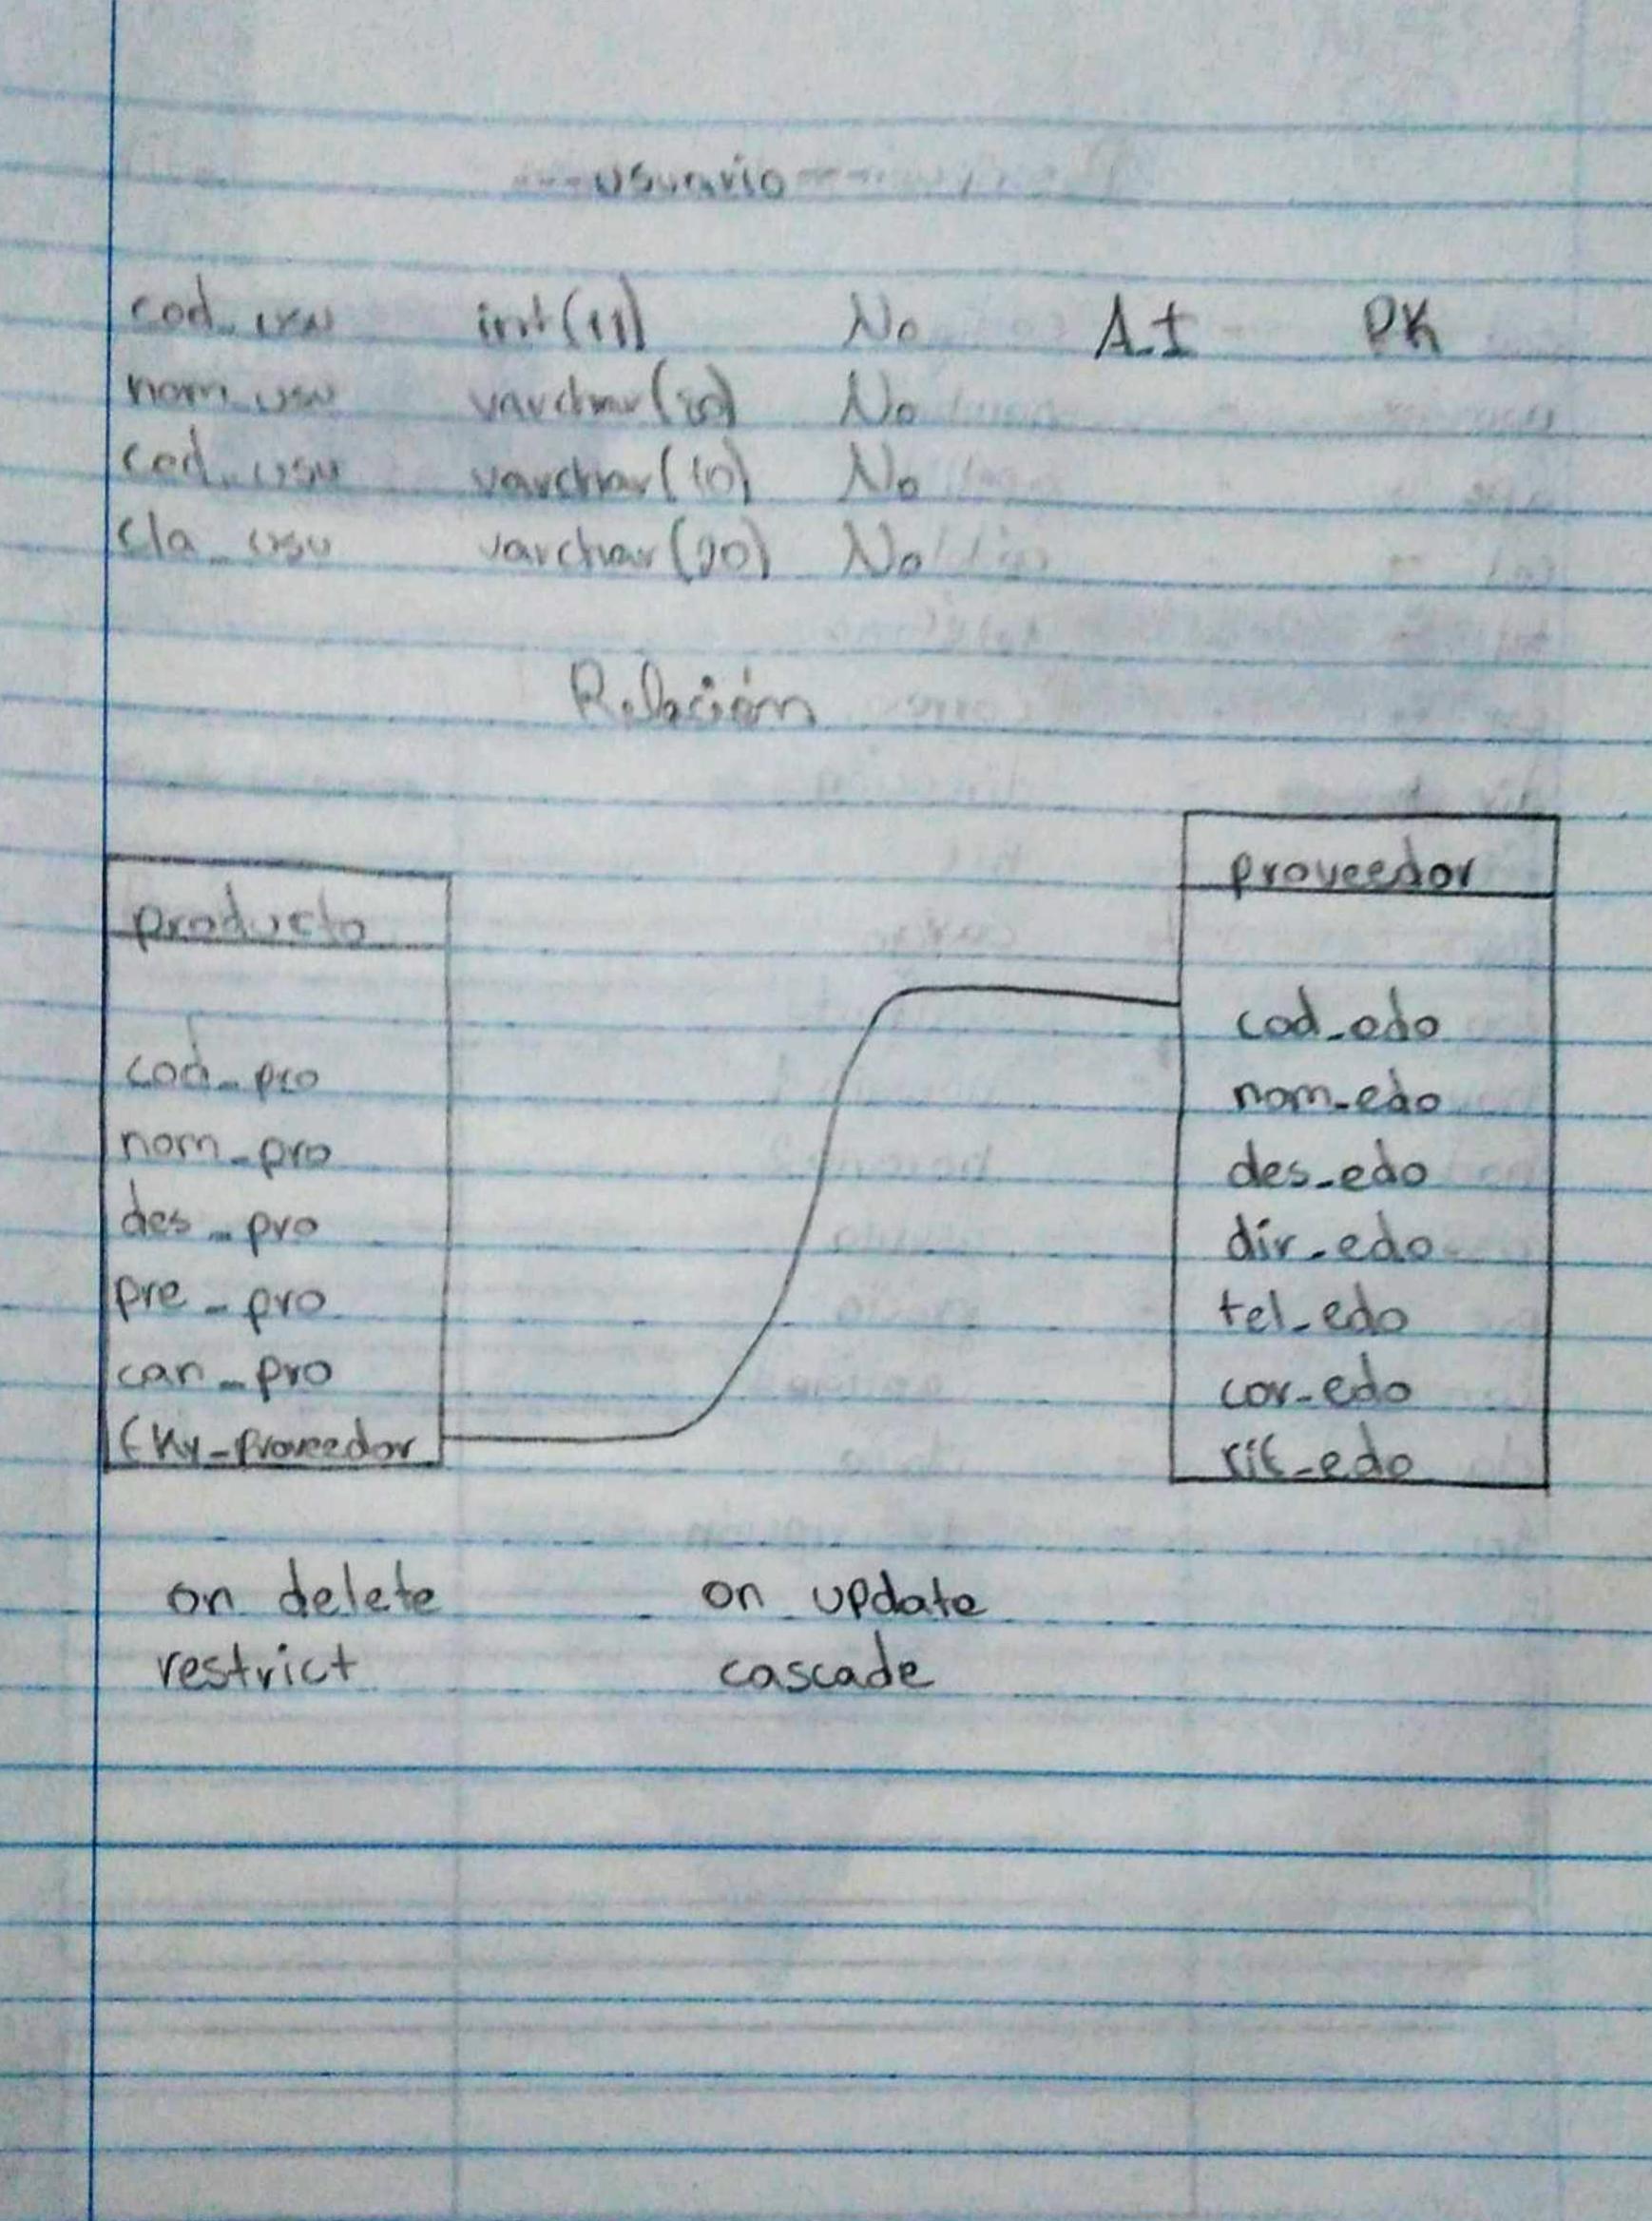 ---usuario---
cod_usu int(11) No A_I PK
nom_usu varchar( No
ced_usu varchar(10) No
cla_usu varchar(20) No
Relación
producto
cod_pro
nom_pro
des_pro
pre_pro
can_pro
fky_proveedor
proveedor
cod_edo
nom_edo
des_edo
dir_edo
tel_edo
cor_edo
rif_edo
on delete on update
restrict cascade